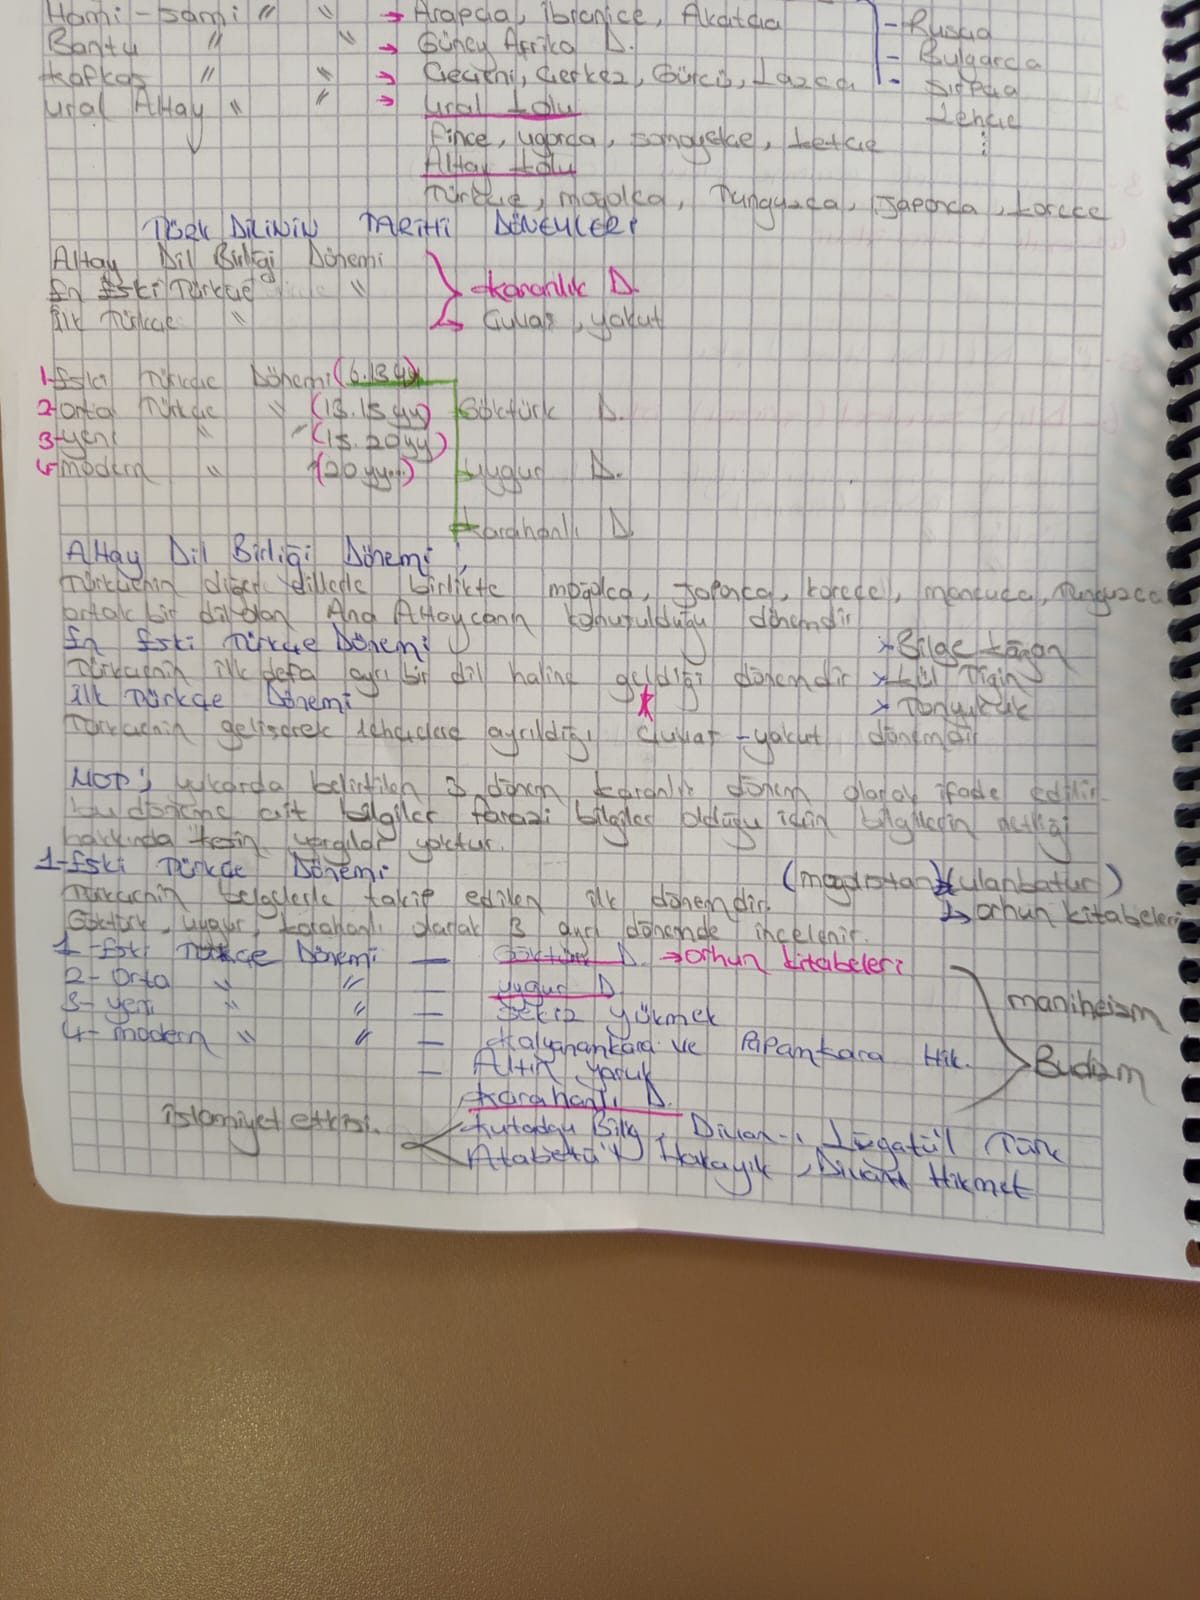 Hami-sami " " → Arapça, İbranice, Akatça - Rusça
Bantu " " → Güney Afrika D. - Bulgarca
Kafkas " " → Çeçeni, Çerkez, Gürcü, Lazca - Sırpça
Ural Altay " " → Ural kolu Lehçe
Fince, ugorca, samoyetçe, ketçe
Altay kolu
Türkçe, moğolca, Tunguzca, Japonca, korece
TÜRK DİLİNİN TARİHİ DÖNEMLERİ
Altay Dil Birliği Dönemi
En Eski Türkçe " → karanlık D.
İlk Türkçe " → Çuvaş, yakut
1-Eski Türkçe Dönemi (6.13 yy)
2-Orta Türkçe " (13.15 yy) Göktürk D.
3-yeni " " (15.20 yy)
4-modern " (20 yy...) uygur D.
Karahanlı D.
Altay Dil Birliği Dönemi
Türkçenin diğer dillerle birlikte moğolca, Japonca, korece, mançuca, Tunguzca
ortak bir dil olan Ana Altaycanın konuşulduğu dönemdir
En Eski Türkçe Dönemi × Bilge kağan
Türkçenin ilk defa ayrı bir dil haline geldiği dönemdir × Kül Tigin
İlk Türkçe Dönemi × Tonyukuk
Türkçenin gelişerek lehçelere ayrıldığı Çuvaş-yakut dönemdir
NOT; yukarda belirtilen 3 dönem karanlık dönem olarak ifade edilir
bu döneme ait bilgiler farazi bilgiler olduğu için bilgilerin netliği
hakkında kesin yargılar yoktur.
1-Eski Türkçe Dönemi (mogolistan ulanbatur)
Türkçenin belgelerle takip edilen ilk dönemdir. ↳ orhun kitabeleri
Göktürk, uygur, karahanlı olarak 3 ayrı dönemde incelenir.
1-Eski Türkçe Dönemi — Göktürk D. → orhun kitabeleri
2-Orta " " — uygur D.
3-yeni " " — Sekiz yükmek maniheizm
4-modern " " — Kalyanamkara ve Papamkara Hik. Budizm
— Altın yaruk
Karahanlı D.
İslamiyet etkisi. Kutadgu Bilig, Divan-ı Lügatü'l Türk
Atabetü'l Hakayık, Divanı Hikmet